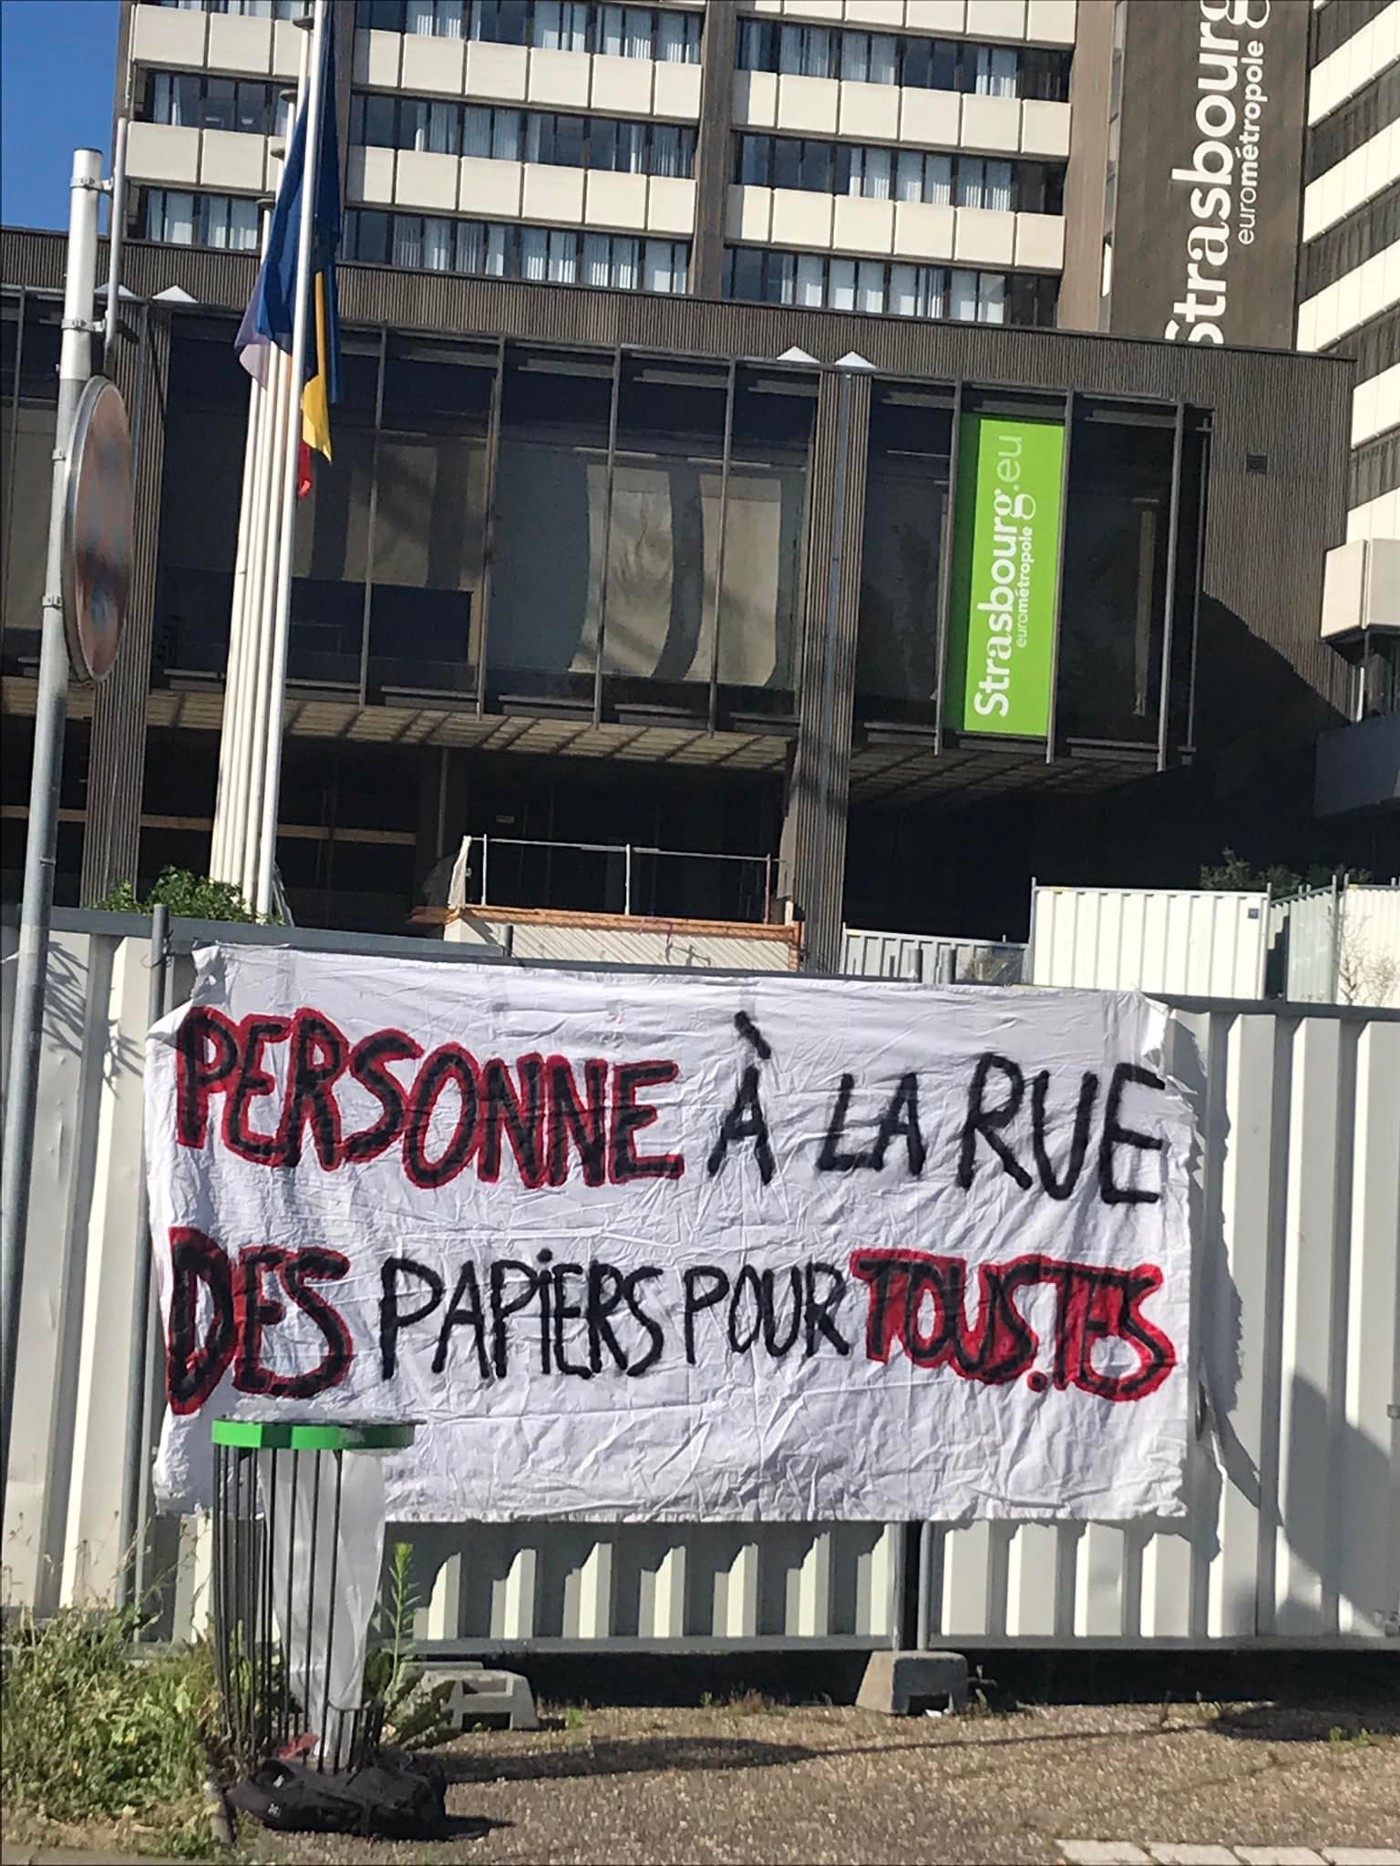 Strasbourg
eurométropole
Strasbourg.eu
eurométropole
PERSONNE À LA RUE
DES PAPIERS POUR TOUS.TES